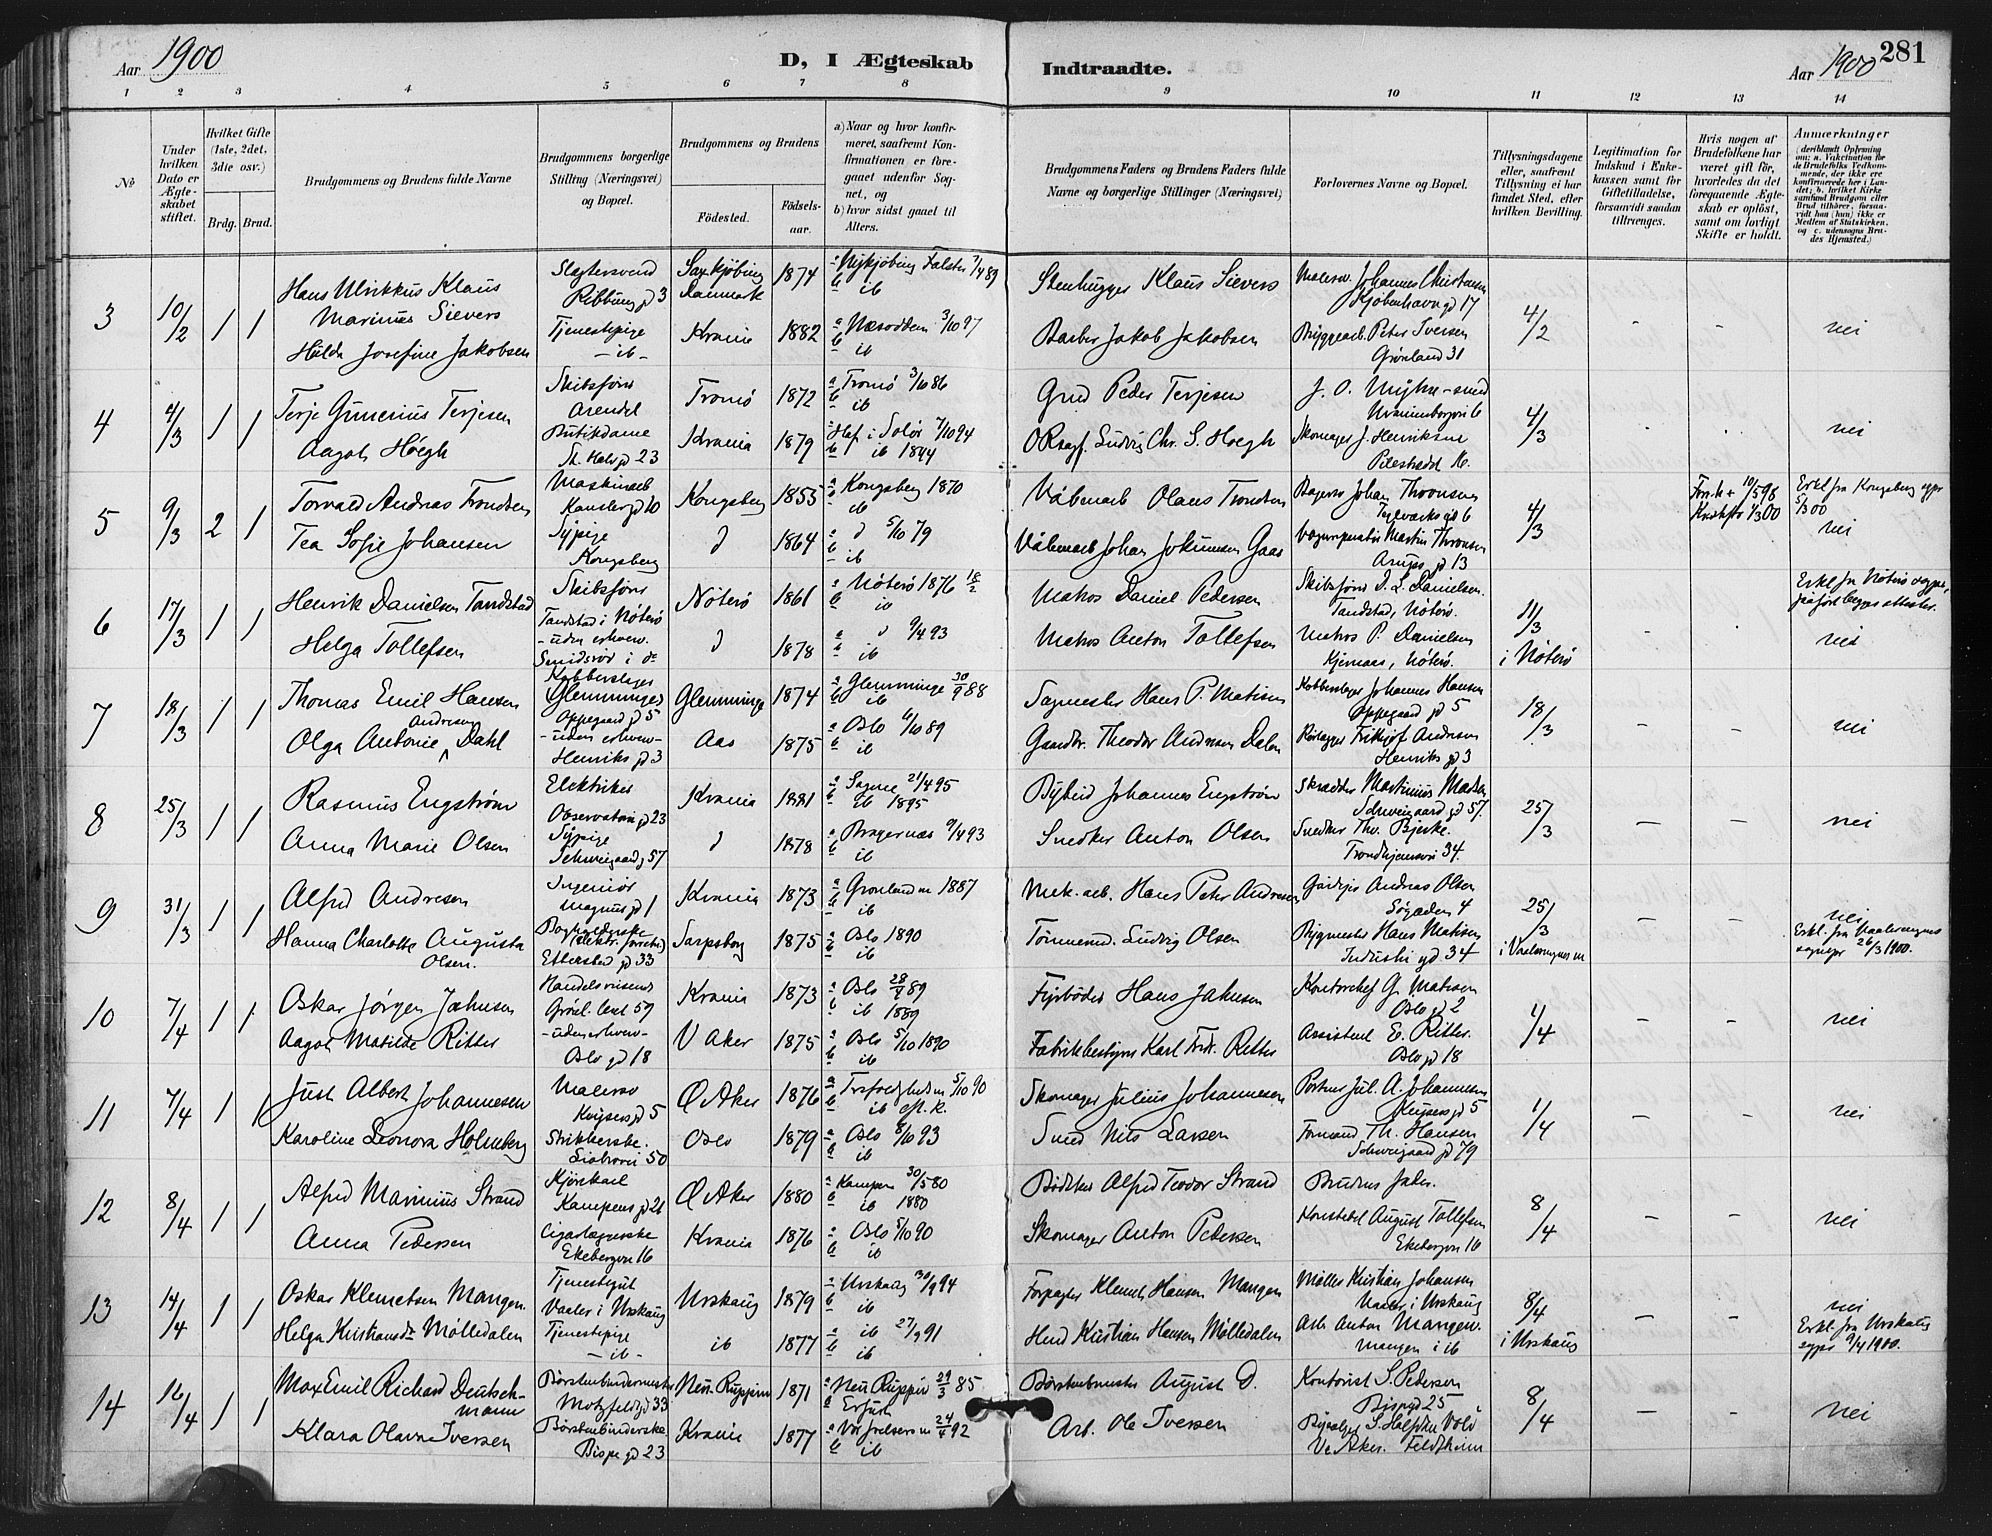 Aar 1900
D, I Ægteskab Indtraadte.
Aar 1900
281
1 2 3 4 5 6 7 8 9 10 11 12 13 14
No
Under hvilken Dato er Ægteskabet stiftet.
Hvilket Gifte (1ste, 2det, 3die osv.)
Brdg. Brud.
Brudgommens og Brudens fulde Navne
Brudgommens borgerlige Stilling (Næringsvei) og Bopæl.
Brudgommens og Brudens
Fødested.
Fødselsaar.
a) Naar og hvor konfirmeret, saafremt Konfirmationen er foregaaet udenfor Sognet, og
b) hvor sidst gaaet til Alters.
Brudgommens Faders og Brudens Faders fulde Navne og borgerlige Stillinger (Næringsvei)
Forlovernes Navne og Bopæl.
Tillysningsdagene eller, saafremt Tillysning ei har fundet Sted, efter hvilken Bevilling.
Legitimation for Indskud i Enkekassen samt for Giftetilladelse, forsaavidt saadan tiltrænges.
Hvis nogen af Brudefolkene har været gift før, hvorledes da det foregaaende Ægteskab er opløst, samt om lovligt Skifte er holdt.
Anmærkninger
(deriblandt Oplysning om: a. Vakcination for de Brudefolks Vedkommende, der ikke ere konfirmerede her i Landet; b. hvilket Kirkesamfund Brudgom eller Brud tilhører, forsaavidt han (hun) ikke er Medlem af Statskirken, og c. udensogns Brudes Hjemsted.)
3 10/2 1 1
Hans Ulrikkus Klaus
Marinus Sievers
Slagtersvend
Ribbung gd 3
Saxkjøbing
Danmark
1874
a Nykjøbing Falster 7/4 89
b ib
Stenhugger Klaus Sievers
Malersv. Johannes Christensen
Kjøbenhavn gd 17
4/2 - - nei
Hilda Josefine Jakobsen
Tjenestepige
- ib -
Krania 1882
a Næsodden 3/10 97
b ib
Barber Jakob Jakobsen
Bryggearb. Peter Iversen
Grønland 31
4 4/3 1 1
Terje Gunerius Terjesen
Skibsfører
Arendel
Tromö 1872
a Tromö 3/10 86
b ib
Grd Peder Terjesen
J. O. Myhre - smed
Uranienborgvei 6
4/3 nei
Aagot Høegh
Butikdame
St. Halv gd 23
Krania 1879
Hof i Solør 7/10 94
b ib 1894
ORsagf. Ludvig Chr. S. Hoegh
Skomager J. Henriksen
Pilestrædet 16.
5 9/3 2 1
Torvald Andreas Trondsen
Maskinarb
Kansler gd 10
Kongsberg 1855
a Kongsberg 1870
b ib
Våbenarb Olaus Trondsen
Bager Johan Thronsen
4/3
10/5 98
1/3 00
Erkl fra Kongsberg sgpr
5/3 00
nei
Tea Sofie Johansen
Sypige
Kongsberg
d 1864
a d 5/10 79
b ib
Våbenarb Johan Jokumsen Gaas
Martin Thronsen
Arups gd 13
6 17/3 1 1
Henrik Danielsen Tandstad
Skibsfører
Tandstad i Nøterö
Nøterö 1861
a Nøterö 1876 18/2
b ib
Matros Daniel Pedersen
Skibsfører D. L. Danielsen.
Tandstad, Nøterö.
11/3
i Nøterö
Erkl fra Nøterö sognepr,
nei
Helga Tollefsen
- uden erhverv.
Smidsrød i do
d 1878
a d 9/4 93
b ib
Matros Anton Tollefsen
Matros P. Danielsen
Kjernaas, Nøterö.
7 18/3 1 1
Thomas Emil Hansen
Kobberslager
Glemminge
Oppegaard gd 5
Glemminge 1874
a Glemminge 30/9 88
b ib
Sagmester Hans P. Matisen
Kobberslager Johannes Hansen
Oppegaard gd 5
18/3 - - nei
Olga Antonie Andresen Dahl
- uden erhverv -
Henriks gd 3
Aas 1875
a Oslo 6/10 89
b ib
Gaardbr. Theodor Andresen Dalen
Rørlægger Fritjof Andresen
Henriks gd 3
8 25/3 1 1
Rasmus Engström
Elektriker
Observatorie gd 23
Krania 1881
a Sagene 21/4 95
b ib 1895
Bybud Johannes Engström
Skrædder Martinius Madsen
Schweigaard gd 57.
25/3 - - nei
Anna Marie Olsen
Sypige
Schweigaard g 57
d 1878
a Bragernæs 9/4 93
b ib
Snedker Anton Olsen
Snedker Thv. Bjerke.
Trondhjemsvei 34.
9 31/3 1 1
Alfred Andresen
Ingeniør
Magnus gd 1
Krania 1873
a Grønland m 1887
b ib
Mek. arb. Hans Peter Andresen
Andreas Olsen
Søgaden 4
25/3
i Vaalerengens m
- - nei
Erkl. fra Vaalerengens
sognepr 26/3 1900.
Hanna Charlotte Augusta
Olsen.
Bogholderske
(elektr. forretn.)
Etterstad gd 33
Sarpsborg 1875
a Oslo 1890
b ib
Tømmermd. Ludvig Olsen
Bygmester Hans Matisen
Industri gd 34
10 7/4 1 1
Oskar Jørgen Jahnsen
Handelsreisende
59
Krania 1873
a Oslo 28/4 89
b ib 1889
Fyrbøder Hans Jahnsen
Kontorchef G. Matisen
Oslo gd 2
1/4 - - nei
Aagot Matilde Ritter
- uden erhverv -
Oslo gd 18
V Aker 1875
a Oslo 5/10 1890
b ib
Fabrikbestyrer Karl Fredr. Ritter
Assistent E. Ritter.
Oslo gd 18
11 7/4 1 1
Just Albert Johannesen
Malersv
Keysers gd 5
Ø Aker 1876
a Trefoldigheds m 5/10 90
b ib eft. k.
Skomager Julius Johannesen
Portner Jul. A. Johannesen
Keysers gd 5
1/4 - - nei
Karoline Leonora Holmberg
Strikkerske.
50
Oslo 1879
a Oslo 8/10 93
b ib
Smed Nils Larsen
Formand Th. Hansen
Schweigaard gd 79
12 8/4 1 1
Alfred Marinius Strand
Kjørekarl
Kampens gd 26
Ø Aker 1880
a Kampen 30/5 80
b ib 1880
Bødker Alfred Teodor Strand
Brudens Fader.
8/4 - - nei
Anna Pedersen
Cigarlagerske
Ekebergvn 16
Krania 1876
a Oslo 5/10 90
b ib
Skomager Anton Pedersen
Konstabel August Tollefsen
Ekebergvn 16
13 14/4 1 1
Oskar Klemetsen Mangen.
Tjenestegut
Vaaler i Urskaug
Urskaug 1879
a Urskaug 30/9 94
b ib
Forpagter Klemet Hansen Mangen
Møller Kristian Johansen
Vaaler i Urskaug
8/4
i Urskaug
- - nei
Erkl. fra Urskaug
sgpr 9/4 1900.
Helga Kristiansdr Mølledalen
Tjenestepige
- ib -
ib 1877
a ib 27/9 91
b ib
Husmd Kristian Hansen Mølledalen
Arb Anton Mangen.
Mangen i ib
14 16/4 1 1
Max Emil Richard Deutschmann
Børstenbindermester
Motzfeldt gd 33
Neu-Ruppin 1871
a Neu Ruppin 29/3 85
b Erfurt
Børstenbmester August D.
Kontorist S. Pedersen
Bisp gd 25
8/4 - - nei
Klara Olava Iversen
Børstenbinderske
Bispe gd 23
Krania 1877
a Vor Frelsers m 24/4 92
b ib
Arb. Ole Iversen
V. Aker.